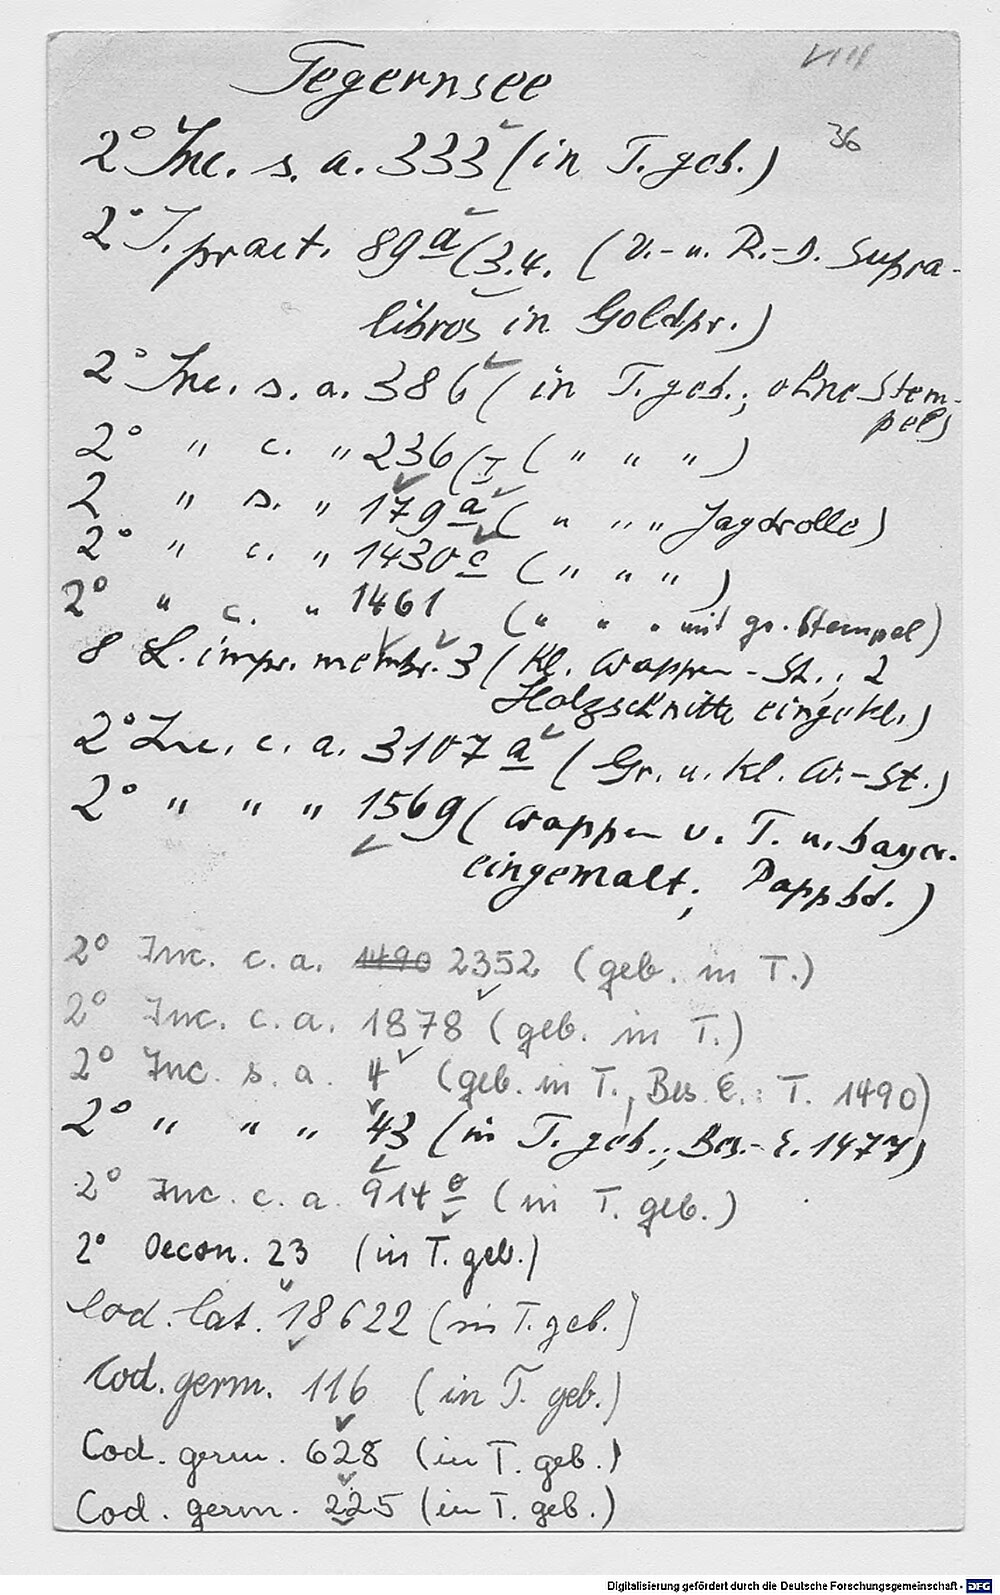 VIII
Tegernsee
36
2° Inc. s. a. 333 (in T. geb.)
2° J. pract. 89 a (3.4. (V.- u. R.-D. Supra-
libros in Goldpr.)
2° Inc. s. a. 386 (in T. geb.; ohne Stem-
pel)
2° " c. " 236 (I ( " " " )
2 " s. " 179 a ( " " " Jagdrolle)
2° " c. " 1430 c ( " " " )
2° " c. " 1461 ( " " " mit gr. Stempel)
8 L. impr. membr. 3 (Kl. Wappen-St.; 2
Holzschnitte eingekl.)
2° Inc. c. a. 3107 a (Gr. u. Kl. W.-St.)
2° " " " 1569 (Wappen v. T. u. bayer.
eingemalt; Pappbd.)
2° Inc. c. a. 1490 2352 (geb. in T.)
2° Inc. c. a. 1878 (geb. in T.)
2° Inc. s. a. 4 (geb. in T., Bes. E.: T. 1490)
2° " " " 43 (in T. geb.; Bes.-E. 1477)
2° Inc. c. a. 914 e (in T. geb.)
2° Oecon. 23 (in T. geb.)
Cod. lat. 18622 (in T. geb.)
Cod. germ. 116 (in T. geb.)
Cod. germ. 628 (in T. geb.)
Cod. germ. 225 (in T. geb.)
Digitalisierung gefördert durch die Deutsche Forschungsgemeinschaft - DFG